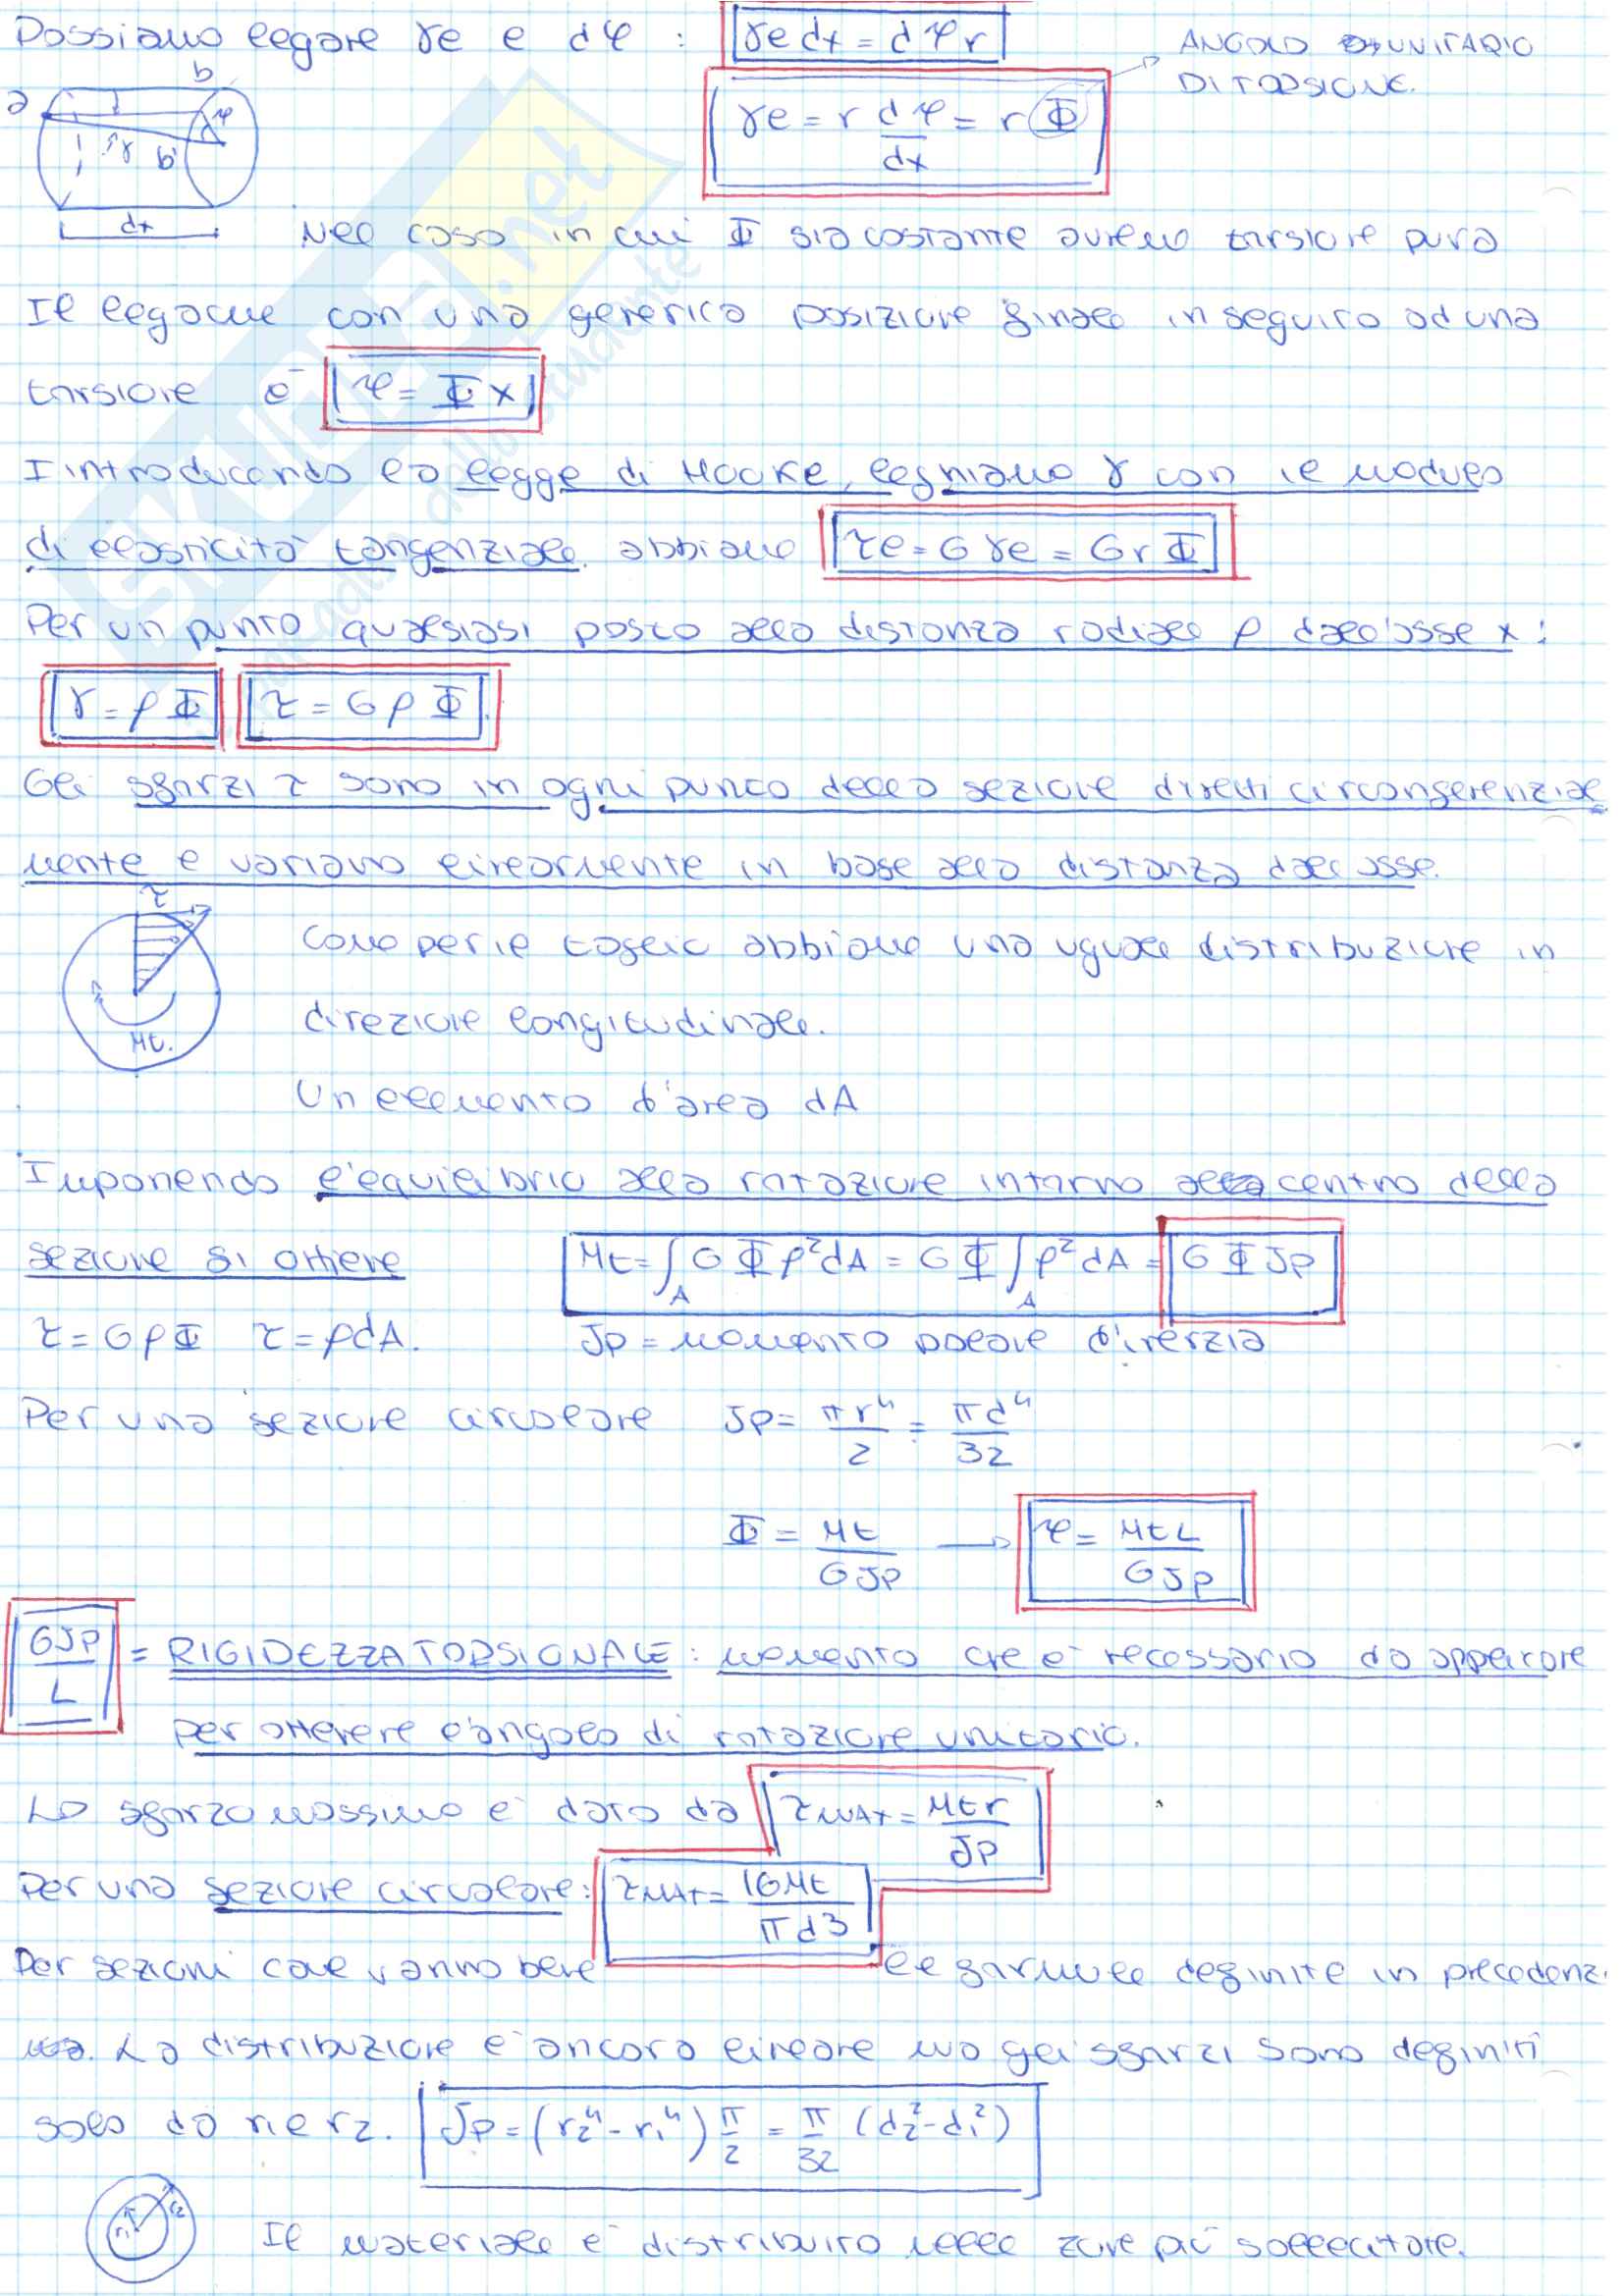 Possiamo legare γe e dφ : γe dx = dφ r
ANGOLO UNITARIO
DI TORSIONE.
γe = r dφ/dx = r Φ
a b φ γ b' dx
Nel caso in cui Φ sia costante avremo torsione pura
Il legame con una generica posizione finale in seguito ad una
torsione è φ = Φ x
Iintroducendo la legge di HOOKE, legniamo γ con il modulo
di elasticità tangenziale. abbiamo τe = G γe = G r Φ
Per un punto qualsiasi posto alla distanza radiale ρ dall'asse x :
γ = ρ Φ τ = G ρ Φ
Gli sforzi τ sono in ogni punto della sezione diretti circonferenzial
mente e variano linearmente in base alla distanza dall'asse.
τ
Mt.
Come per il taglio abbiamo una uguale distribuzione in
direzione longitudinale.
Un elemento d'area dA
Imponendo l'equilibrio alla rotazione intorno al centro della
sezione si ottiene Mt = ∫A G Φ ρ² dA = G Φ ∫A ρ² dA = G Φ Jp
τ = G ρ Φ τ = ρ dA. Jp = momento polare d'inerzia
Per una sezione circolare Jp = πr⁴/2 = πd⁴/32
Φ = Mt/GJp → φ = Mt L/GJp
GJp/L = RIGIDEZZA TORSIONALE : momento che è necessario da applicare
per ottenere l'angolo di rotazione unitario.
Lo sforzo massimo è dato da τMAX = Mt r/Jp
Per una sezione circolare : τMAX = 16Mt/πd3
Per sezioni cave vanno bene le formule definite in precedenz.
La distribuzione è ancora lineare ma gli sforzi sono definiti
solo da r1 e r2. Jp = (r2⁴ - r1⁴) π/2 = π/32 (d2² - d1²)
r1 r2
Il materiale è distribuito nelle zone più sollecitate.
SKUOLA.net